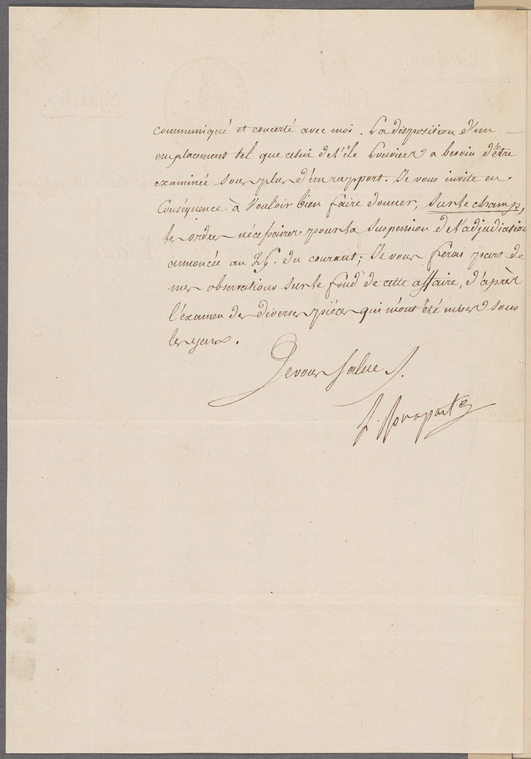 communiqué et concerté avec moi. La disposition d'un
emplacement tel que celui de l'île Louvier a besoin d'être
examinée sous plus d'un rapport. Je vous invite en
Conséquence à Vouloir bien faire donner, sur le champ,
les ordres nécessaires pour la suspension de l'adjudication
annoncée au 25. du courant; Je vous ferai part de
mes observations sur le fond de cette affaire, d'après
l'éxamen des diverses pièces qui m'ont été mises sous
les yeux.
Je vous salue
Bonaparte